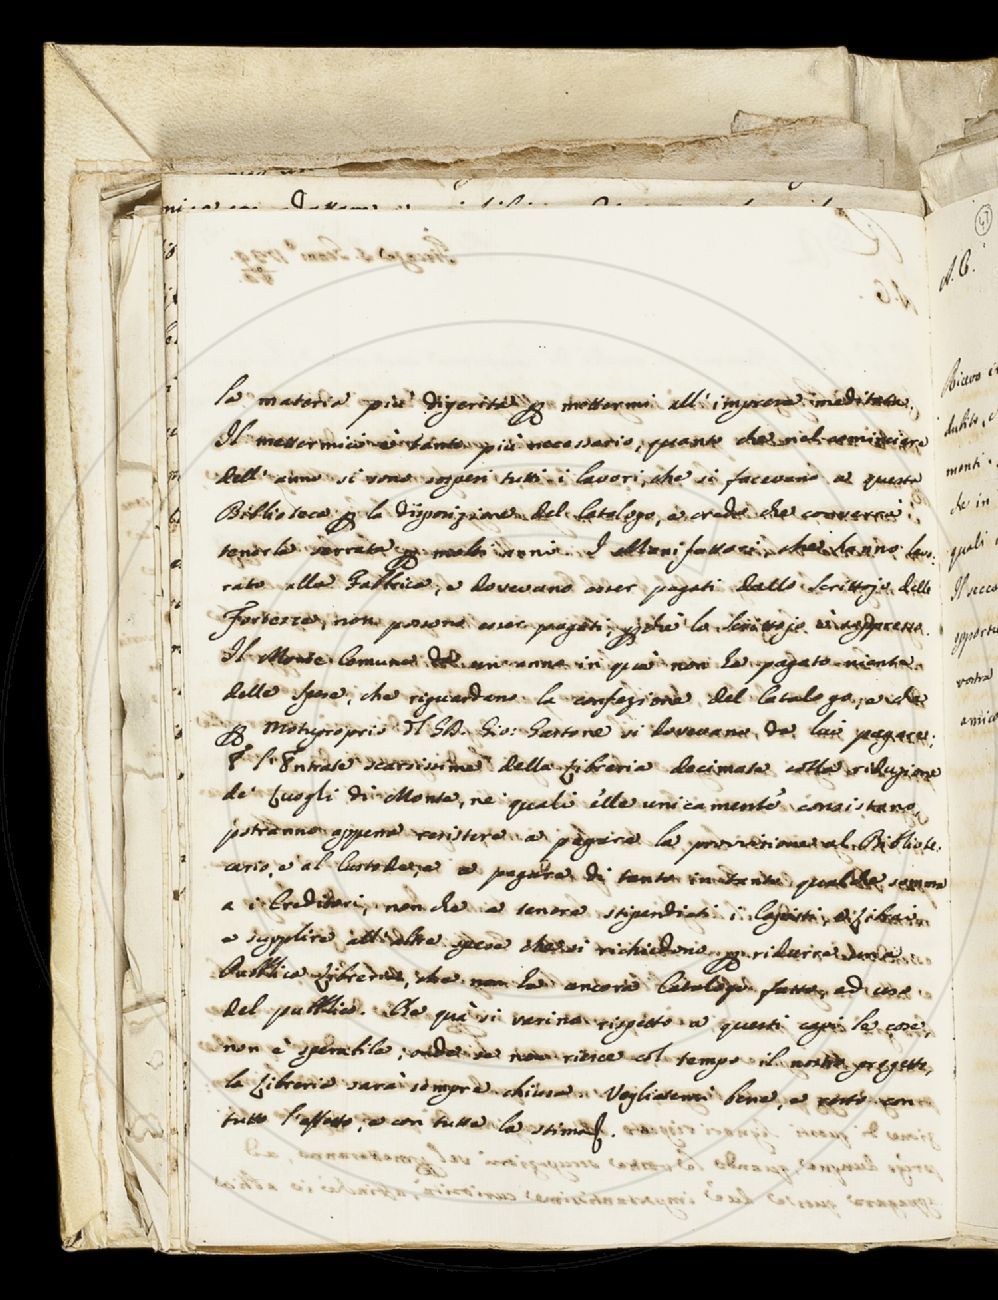 la materia più digerita per mettermi all'impresa meditata.
Il mettermici è tanto più necessario, quanto che nel cominciare
dell'anno si sono sospesi tutti i lavori, che si facevano a questa
Biblioteca per la disposizione del Catalogo, e credo che converrà
tenerla serrata per molti anni. I Manifattori, che hanno lavo-
rato alla Fabbrica, e dovevano esser pagati dallo Scrittojo delle
Fortezze, non possono esser pagati, perchè lo Scrittojo è
Il Monte Comune da un anno in quà non ha pagato niente
delle spese, che riguardano la confezione del Catalogo, e che
per Motuproprio del GD. Gio: Gastone si dovevano da lui pagare;
E l'Entrate scarsissime della Libreria decimate colla riduzione
de' Luoghi di Monte, ne' quali elle unicamente consistano,
potranno appena resistere a pagare la provvisione al Bibliote-
cario, e al Custode, e a pagare di tanto in tanto qualche somma
a i Creditori, non che a tenere stipendiati i Copisti,
e supplire all'altre spese che si richiedono per ridurre una
Pubblica Libreria, che non ha ancora Catalogo fatto, ad uso
del pubblico. Che quà si varino rispetto a questi capi le cose,
non è sperabile; onde se non riesce col tempo il nostro progetto,
la Libreria sarà sempre chiusa. Vogliatemi bene, e resto con
tutto l'affetto, e con tutta la stima.
A. C.
Ricevo
monti
che in
quali
Il secco
vostra
amico
47